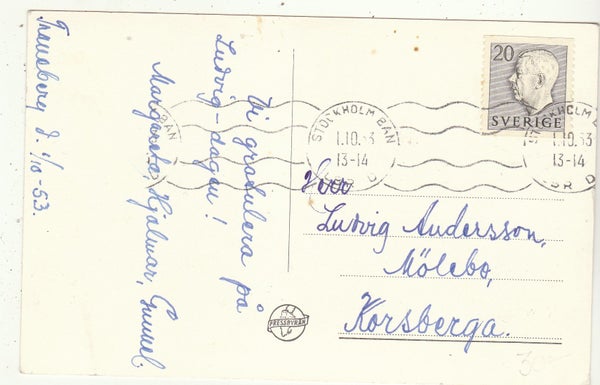 Traneberg d. 1/10-53.
Vi gratulera på
Ludvig-dagen!
Margareta, Hjalmar, Gunnel.
20
SVERIGE
STOCKHOLM BAN
1.10.53
13-14
1.10.53
13-14
Herr
Ludvig Andersson,
Mölebo,
Korsberga.
PRESSBYRÅN